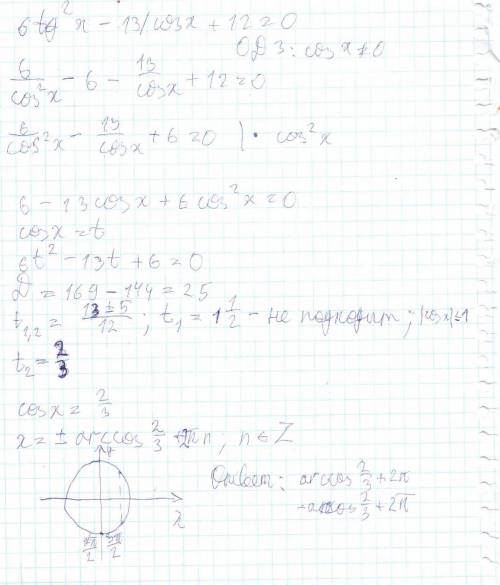 6tg²x - 13/cosx + 12 = 0
ОДЗ: cosx ≠ 0
6/cos²x - 6 - 13/cosx + 12 = 0
6/cos²x - 13/cosx + 6 = 0 | · cos²x
6 - 13cosx + 6cos²x = 0
cosx = t
6t² - 13t + 6 = 0
D = 169 - 144 = 25
t₁,₂ = (13 ± 5)/12 ; t₁ = 1 1/2 - не подходит; |cosx| ≤ 1
t₂ = 2/3
cosx = 2/3
x = ± arccos 2/3 + 2πn, n ∈ Z
Ответ: arccos 2/3 + 2π
-arccos 2/3 + 2π
x